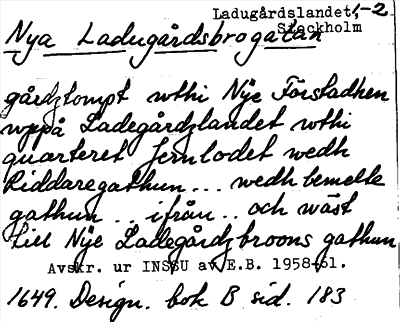 Ladugårdslandet, 1-2
Stockholm
Nya Ladugårdsbrogatan
gårdztompt wthi Nye Förstadhen
wppå Ladegårdzlandet wthi
quarteret Jernlodet wedh
Riddaregathun... wedh bemelte
gathun .. ifrån .. och wäst
till Nye Ladegårdzbroons gathun
Avskr. ur INSSU av E.B. 1958-61.
1649. Design. bok B sid. 183